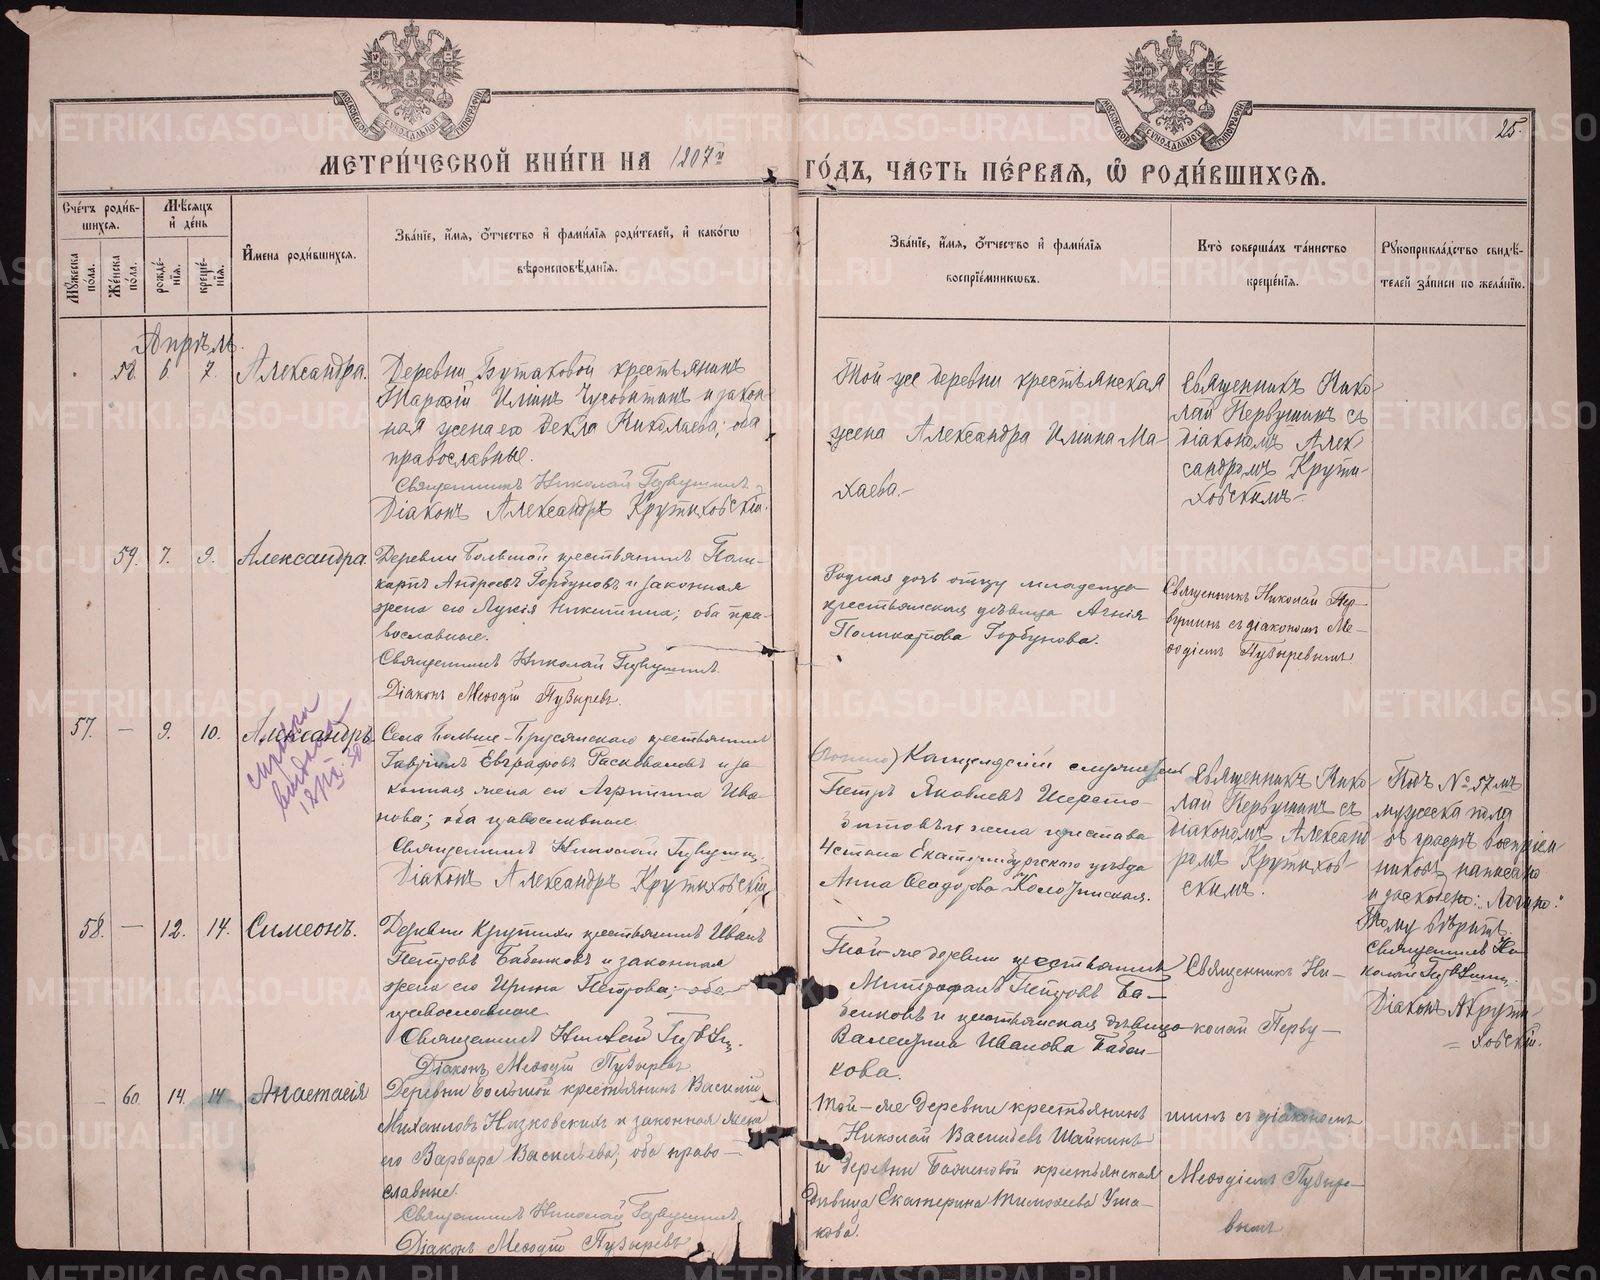 МОСКОВСКОЙ СѴНОДАЛЬНОЙ ТИПОГРАФІИ
МОСКОВСКОЙ СѴНОДАЛЬНОЙ ТИПОГРАФІИ
25.
МЕТРИ́ЧЕСКОЙ КНИ́ГИ НА 1907й ГО́ДЪ, ЧА́СТЬ ПЕ́РВАЯ, Ѡ РОДИ́ВШИХСЯ.
Сче́тъ роди́в-
шихся.
Мѣ́сяцъ
и҆ де́нь
И҆мена роди́вшихся.
Зва́нїе, и҆́мя, ѻ҆́тчество и҆ фами́лїя роди́телей, и҆ како́гѡ
вѣроисповѣ́данїя.
Зва́нїе, и҆́мя, ѻ҆́тчество и҆ фами́лїя
воспрїе́мникѡвъ.
Кто̀ соверша́лъ та́инство
креще́нїя.
Рꙋкоприкла́дство свидѣ́-
телей за́писи по жела́нїю.
Мꙋ́жеска
по́ла.
Же́нска
по́ла.
рожде́-
нїя.
креще́-
нїя.
Апрѣль.
58. 6 7. Александра.
Деревни Бутаковой крестьянинъ
Илiинъ Чусовитинъ и закон-
ная жена его Фекла Николаева; оба
православные.
Священникъ Николай Первушинъ
Дiаконъ Александръ Крутиховскiй.
Той же деревни крестьянская
жена Александра Илiина Ма-
хаева.-
Священникъ Нико-
лай Первушинъ съ
дiакономъ Алек-
сандромъ Крути-
ховскимъ-
59. 7. 9. Александра.
Деревни Большой крестьянинъ Поли-
карпъ Андреевъ Горбуновъ и законная
жена его Лукiя Никитина; оба пра-
вославные.
Священникъ Николай Первушинъ.
Дiаконъ Меѳодiй Пузыревъ.
Родная дочь отцу младенца
крестьянская дѣвица Агнiя
Поликарпова Горбунова.
Священникъ Николай Пер-
вушинъ съ дiакономъ Ме-
ѳодiемъ Пузыревымъ
57. — 9. 10. Александръ
справка
выдана
Села Больше-Брусянскаго крестьянинъ
Гавриилъ Евграфовъ Расковаловъ и за-
конная жена его Агриппина Ива-
нова; оба православные.
Священникъ Николай Первушинъ.
Дiаконъ Александръ Крутиховскiй
Канцелярскiй служитель
Петръ Яковлевъ Шерсто-
битовъ и жена пристава
4 стана Екатеринбургскаго уѣзда
Анна Ѳеодорова
Священникъ Нико-
лай Первушинъ съ
дiакономъ Александ-
ромъ Крутихов-
скимъ.
Подъ № 57 мъ
мужеска пола
въ графѣ воспрiем-
никовъ написано
Тому вѣрить.
Священникъ Ни-
колай Первушинъ.
Дiаконъ А Крути-
= ховскiй.
58. — 12. 14. Симеонъ.
Деревни Крутихи крестьянинъ Иванъ
Петровъ Бабенковъ и законная
жена его Ирина Петрова; оба
православные
Священникъ Николай
Дiаконъ Меѳодiй Пузыревъ
Той-же деревни крестьянинъ
Митрофанъ Петровъ Ба-
бенковъ и крестьянская дѣвица
Валентина Иванова Бабен-
кова.
Священникъ Ни-
колай Перву-
60. 14. 14 Анастасiя
Деревни Большой крестьянинъ Василiй
Михаиловъ Низковскихъ и законная жена
его Варвара Васильева; оба право-
славные.
Священникъ Николай Первушинъ
Дiаконъ Меѳодiй Пузыревъ
Той-же деревни крестьянинъ
Николай Васильевъ Шайкинъ
и деревни Баженовой крестьянская
дѣвица Екатерина Тимоѳеева Уша-
кова.
шинъ съ дiакономъ
Меѳодiемъ Пузыре-
вымъ
METRIKI.GASO-URAL.RU